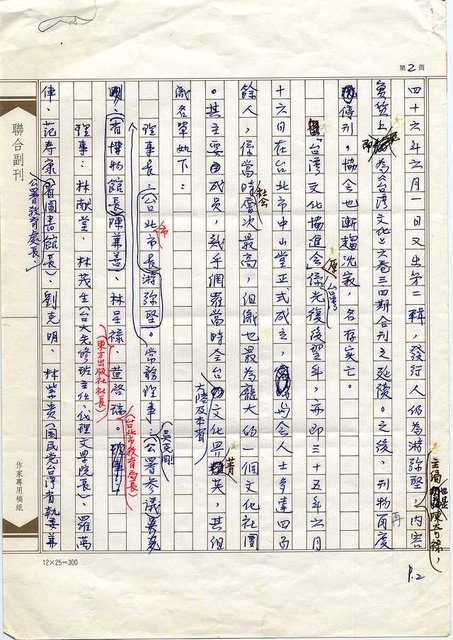 第2頁
四十六年六月一日又出第二輯，發行人仍為游弥堅，主编也是陳奇祿，內容
實質上即為《台灣文化》六卷三四期合刊之延續。之後，刊物再度
停刊，協会也漸趨沈寂，名存实亡。
台湾文化協進会係光復後翌年，亦即三十五年六月
十六日在台北市中山堂正式成立，与会人士多達四百
餘人，係當時社会層次最高，組織也最為龐大的一個文化社團
。其主要成員，幾乎網羅當時全台大陸及本省文化界菁英，其組
織名單如下：
理事長：(台北市長)游弥堅。常務理事：(公署參議)吳克剛
(省博物館長)陳兼善、林呈祿(東方出版社社長)、黃啓瑞(台北市教育局長)。
理事：林献堂、林茂生(台大先修班主任、代理文學院長)、羅萬
俥、范寿康(公署教育處長)、劉克明、林紫贵(國民党台湾省執委兼
聯合副刊
作家專用稿紙
12×25=300
P.2